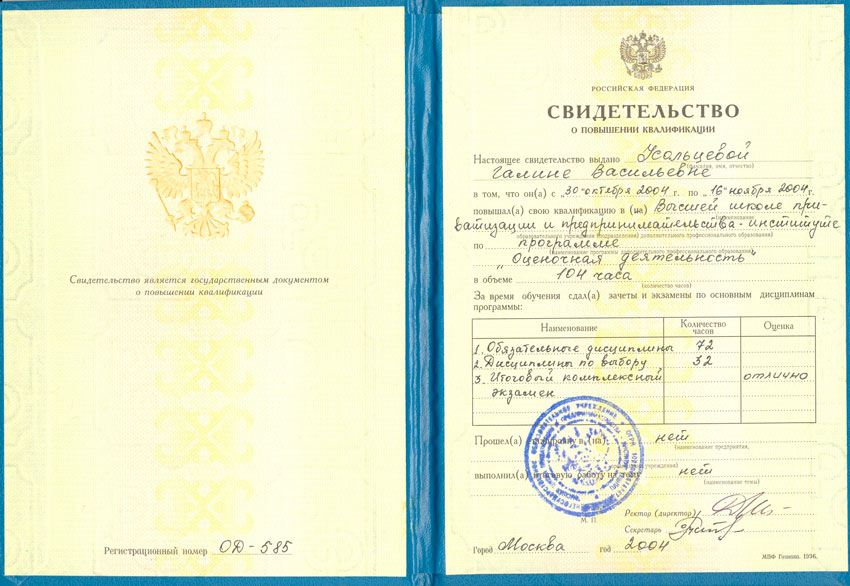 Свидетельство является государственным документом
о повышении квалификации
Регистрационный номер ОД-585
РОССИЙСКАЯ ФЕДЕРАЦИЯ
СВИДЕТЕЛЬСТВО
О ПОВЫШЕНИИ КВАЛИФИКАЦИИ
Настоящее свидетельство выдано Усальцевой
(фамилия, имя, отчество)
Галине Васильевне
в том, что он(а) с „30" октября 2004 г. по „16" ноября 2004 г.
повышал(а) свою квалификацию в (на) Высшей школе при-
(наименование
ватизации и предпринимательства-институте
образовательного учреждения (подразделения) дополнительного профессионального образования)
по программе
(наименование программы дополнительного профессионального образования)
„Оценочная деятельность"
в объеме 104 часа
(количество часов)
За время обучения сдал(а) зачеты и экзамены по основным дисциплинам
программы:
Наименование Количество часов Оценка
1. Обязательные дисциплины 72
2. Дисциплины по выбору 32
3. Итоговый комплексный отлично
экзамен
Прошел(а) стажировку в (на) нет
(наименование предприятия,
учреждения)
выполнил(а) итоговую работу на тему нет
(наименование темы)
Ректор (директор)
М. П.
Секретарь
Город Москва год 2004
МПФ Гознака. 1996.